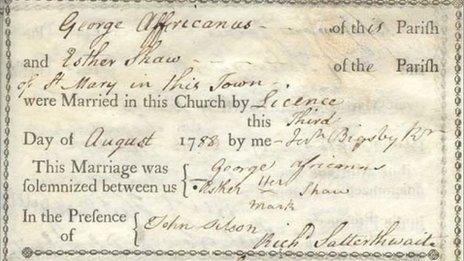 George Affricanus of this Parish
and Esther Shaw of the Parish
of St Mary in this Town
were Married in this Church by Licence
this Third
Day of August 1788 by me
This Marriage was George Africanus
solemnized between us Esther Her Shaw
Mark
In the Presence John
of Richd Satterthwaite